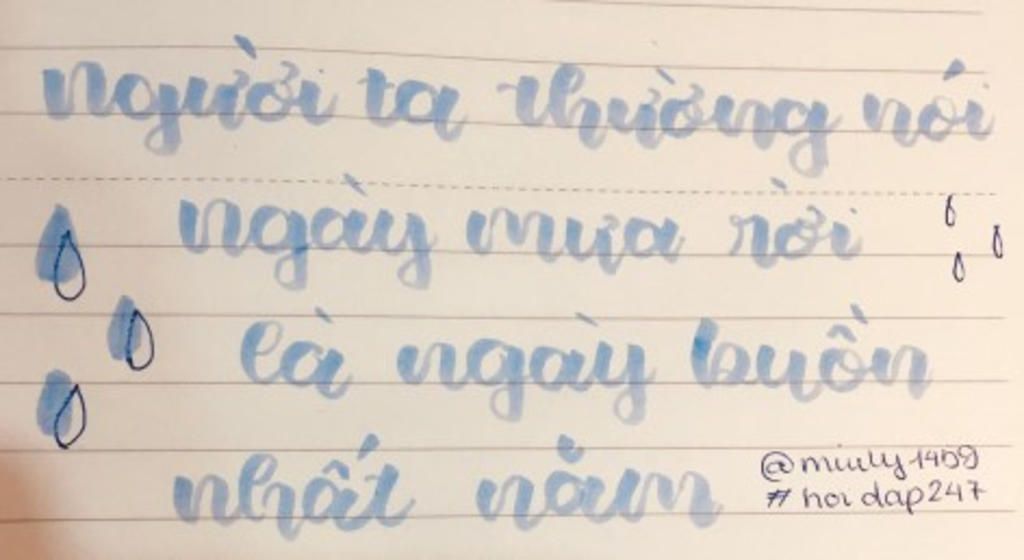 người ta thường nói
ngày mưa rơi
là ngày buồn
nhất năm
@miuly1459
#hoidap247